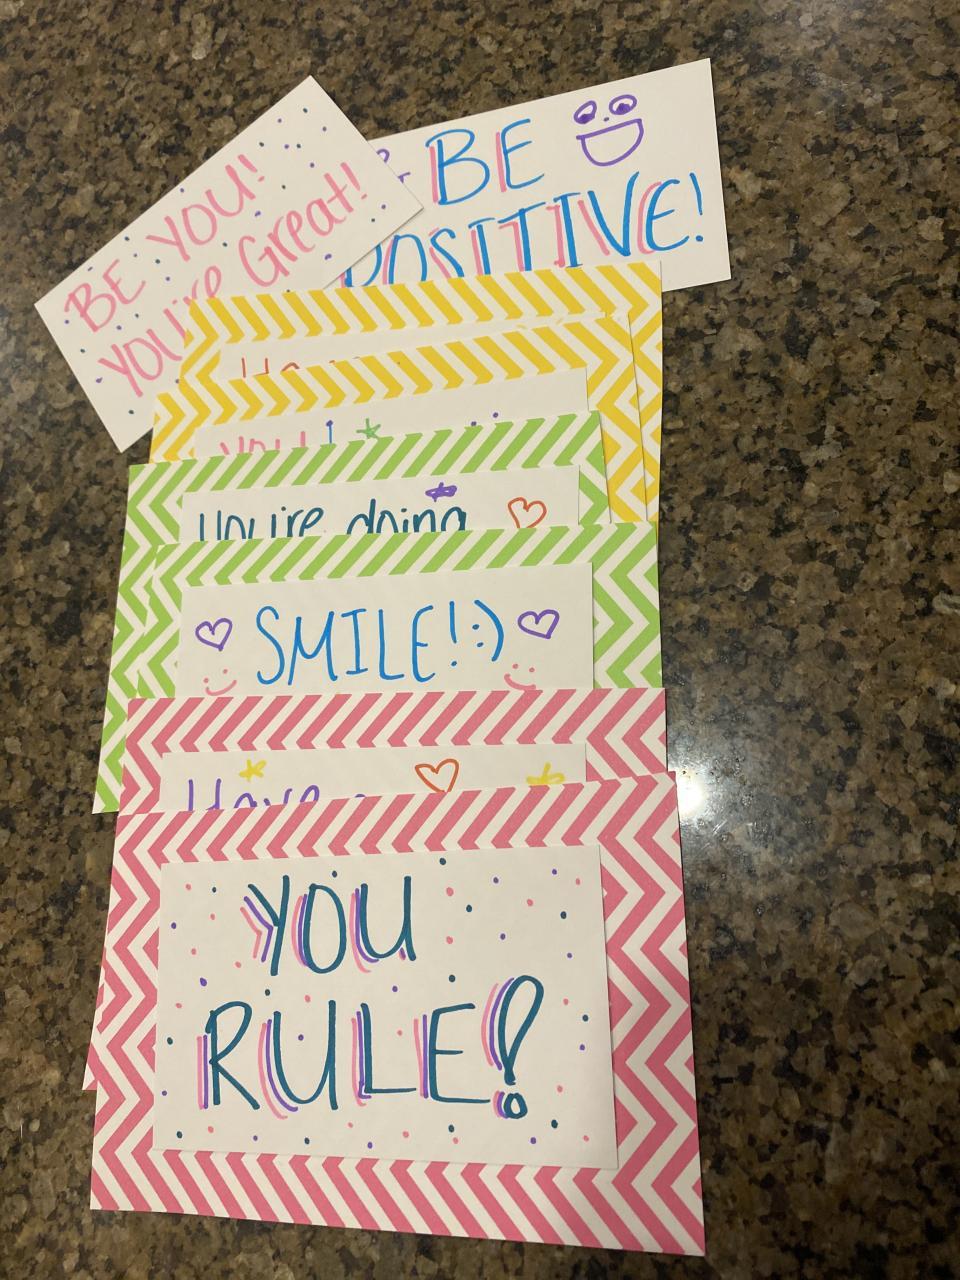 BE YOU!
You're Great!
BE
POSITIVE!
You're doing
SMILE! :)
Have
YOU
RULE!